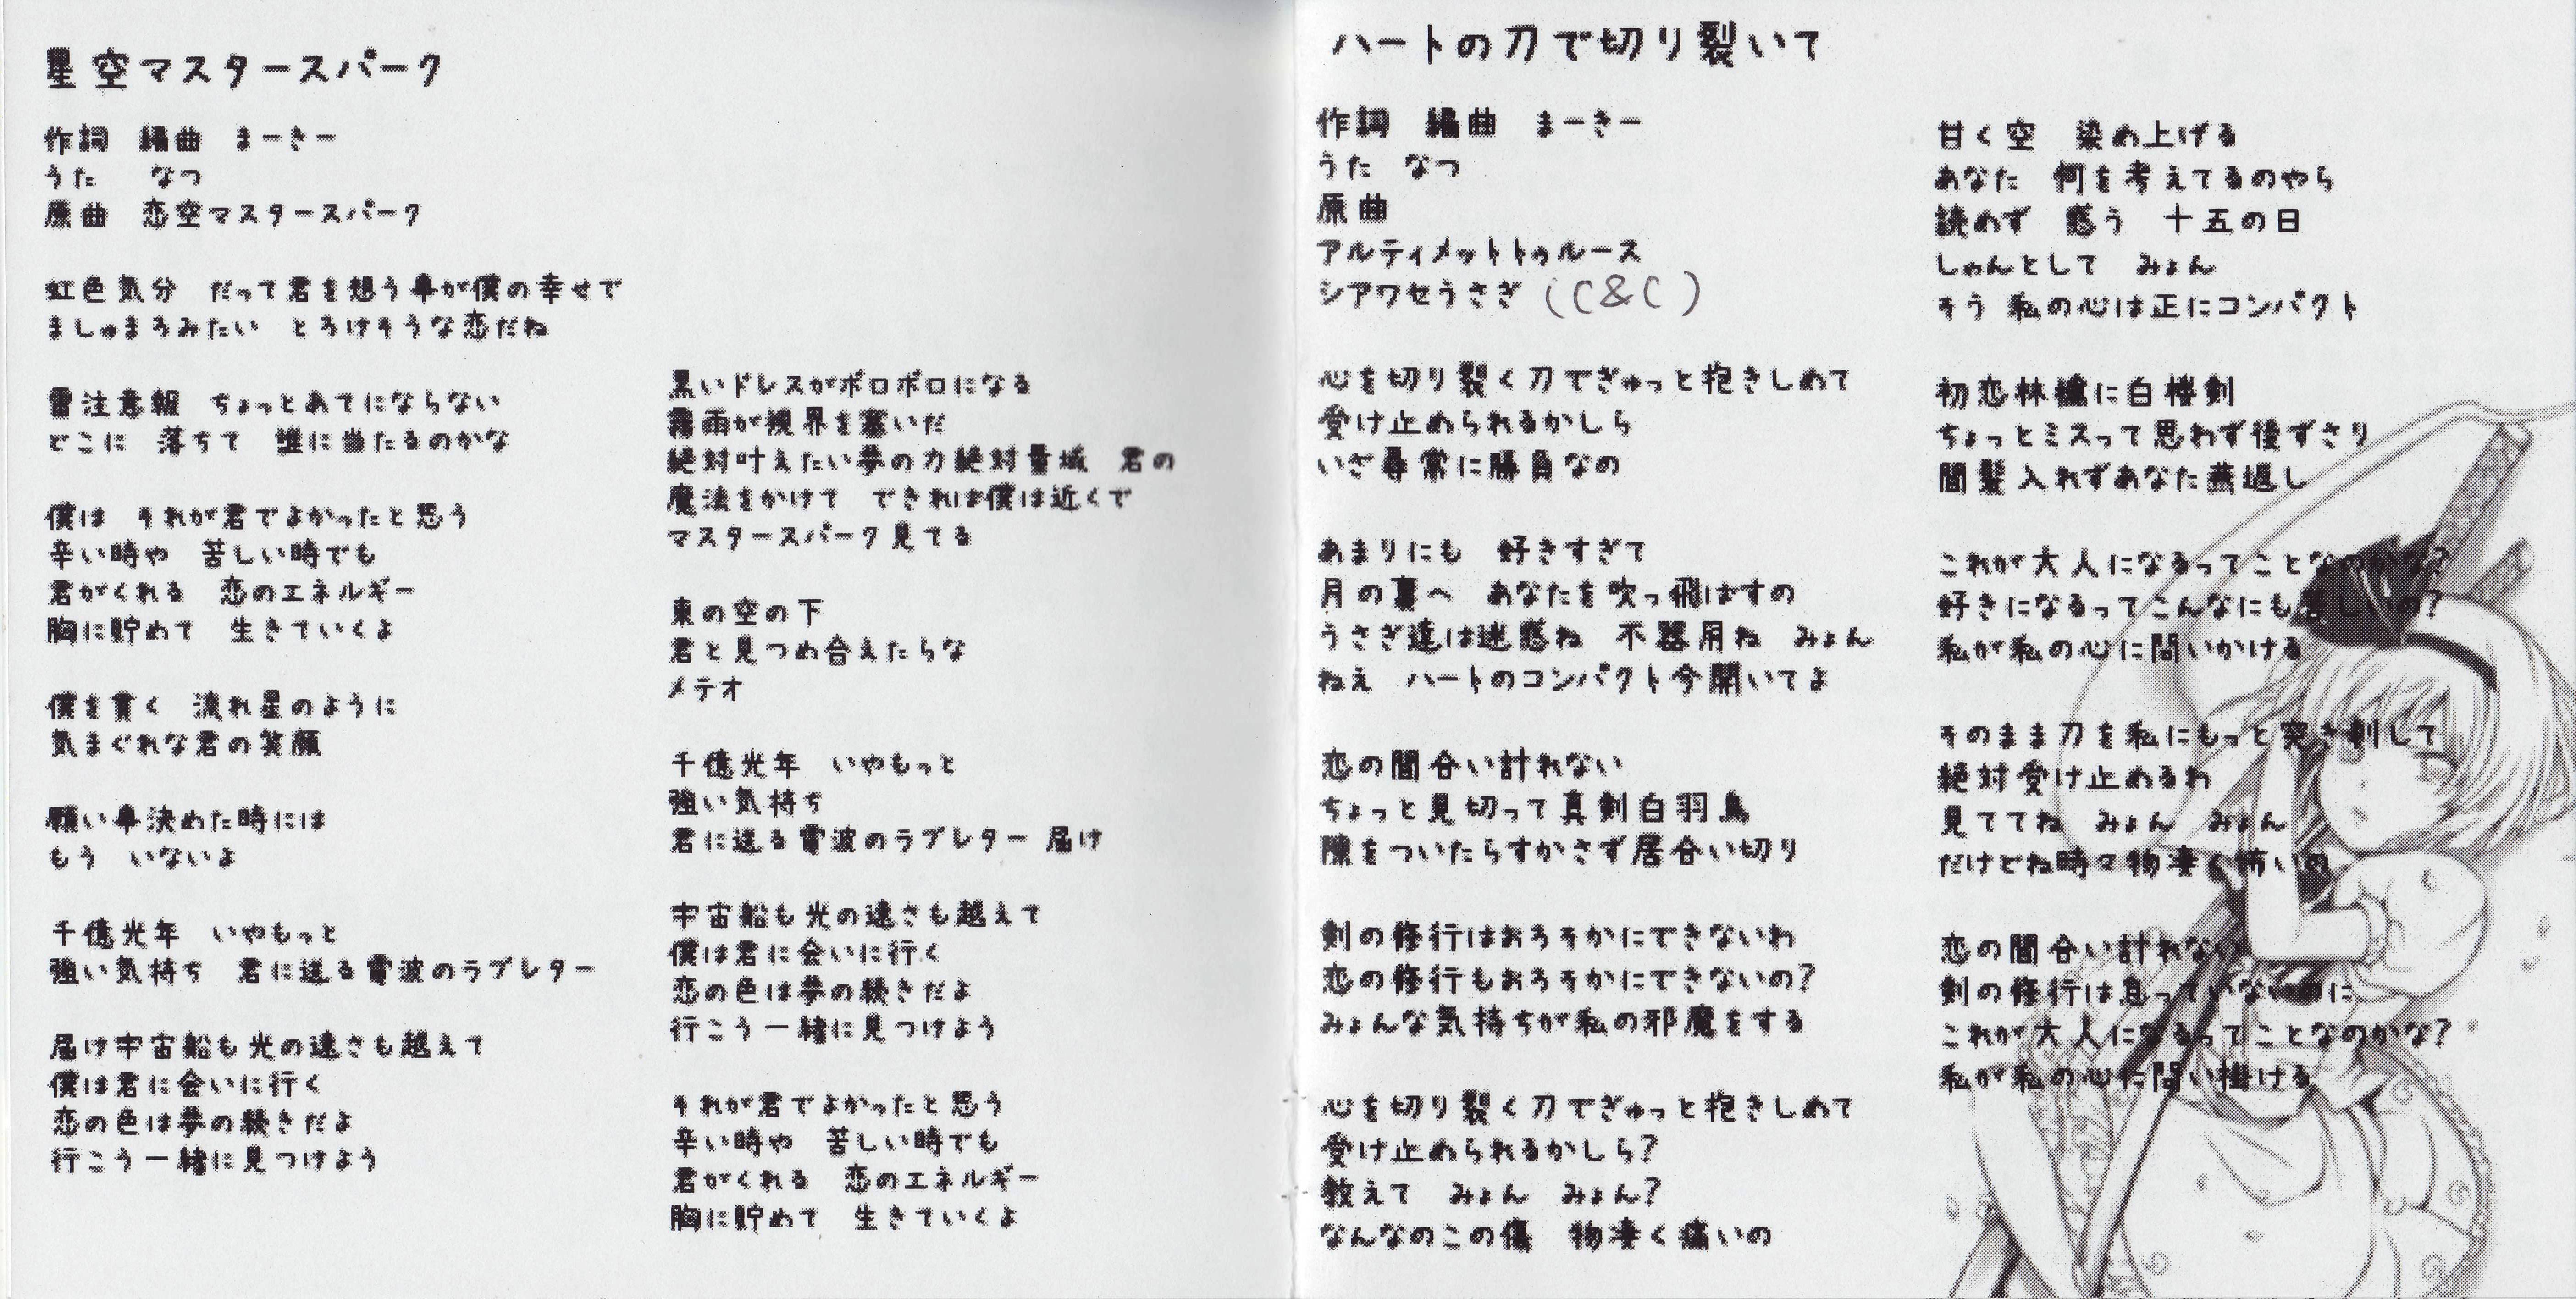 星空マスタースパーク
作詞　編曲　まーきー
うた　　なつ
原曲　恋空マスタースパーク
虹色気分　だって君を想う事が僕の幸せで
ましゅまろみたい　とろけそうな恋だね
雷注意報　ちょっとあてにならない
どこに　落ちて　誰に当たるのかな
僕は　それが君でよかったと思う
辛い時や　苦しい時でも
君がくれる　恋のエネルギー
胸に貯めて　生きていくよ
僕を貫く　流れ星のように
気まぐれな君の笑顔
願い事決めた時には
もう　いないよ
千億光年　いやもっと
強い気持ち　君に送る電波のラブレター
届け宇宙船も光の速さも越えて
僕は君に会いに行く
恋の色は夢の続きだよ
行こう一緒に見つけよう
黒いドレスがボロボロになる
霧雨が視界を塞いだ
絶対叶えたい夢の力絶対量域　君の
魔法をかけて　できれば僕は近くで
マスタースパーク見てる
東の空の下
君と見つめ合えたらな
メテオ
千億光年　いやもっと
強い気持ち
君に送る電波のラブレター 届け
宇宙船も光の速さも越えて
僕は君に会いに行く
恋の色は夢の続きだよ
行こう一緒に見つけよう
それが君でよかったと思う
辛い時や　苦しい時でも
君がくれる　恋のエネルギー
胸に貯めて　生きていくよ
ハートの刀で切り裂いて
作詞　編曲　まーきー
うた　なつ
原曲
アルティメットトゥルース
シアワセうさぎ (C&C)
心を切り裂く刀でぎゅっと抱きしめて
受け止められるかしら
いざ尋常に勝負なの
あまりにも　好きすぎて
月の裏へ　あなたを吹っ飛ばすの
うさぎ達は迷惑ね　不器用ね　みょん
ねえ　ハートのコンパクト今開いてよ
恋の間合い計れない
ちょっと見切って真剣白羽鳥
隙をついたらすかさず居合い切り
剣の修行はおろそかにできないわ
恋の修行もおろそかにできないの?
みょんな気持ちが私の邪魔をする
心を切り裂く刀でぎゅっと抱きしめて
受け止められるかしら?
教えて　みょん　みょん?
なんなのこの傷　物凄く痛いの
甘く空　染め上げる
あなた　何を考えてるのやら
読めず　惑う　十五の日
しゅんとして　みょん
そう 私の心は正にコンパクト
初恋林檎に白楼剣
ちょっとミスって思わず後ずさり
間髪入れずあなた燕返し
これが大人になるってことなのかな?
好きになるってこんなにも苦しいの?
私が私の心に問いかける
そのまま刀を私にもっと突き刺して
絶対受け止めるわ
見ててね　みょん　みょん
だけどね時々物凄く怖いの
恋の間合い計れない
剣の修行は怠っていないのに
これが大人になるってことなのかな?
私が私の心に問い掛ける